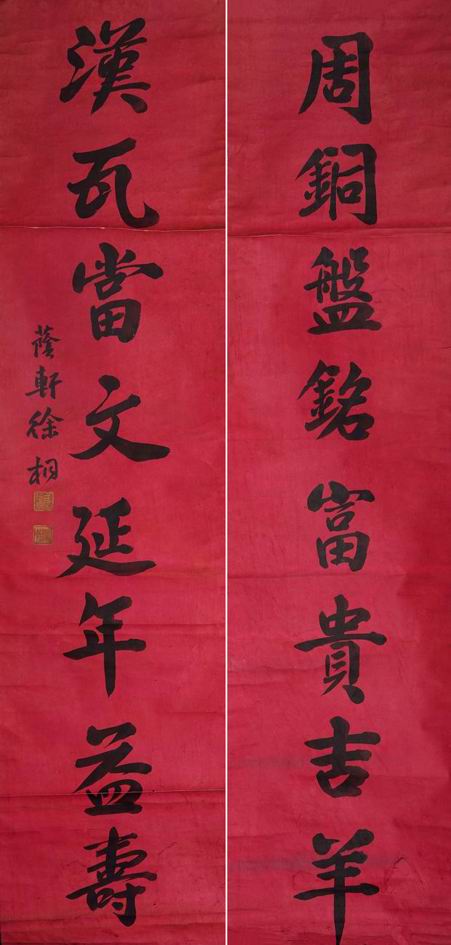 周銅盤銘富貴吉羊
漢瓦當文延年益壽
蔭軒徐桐